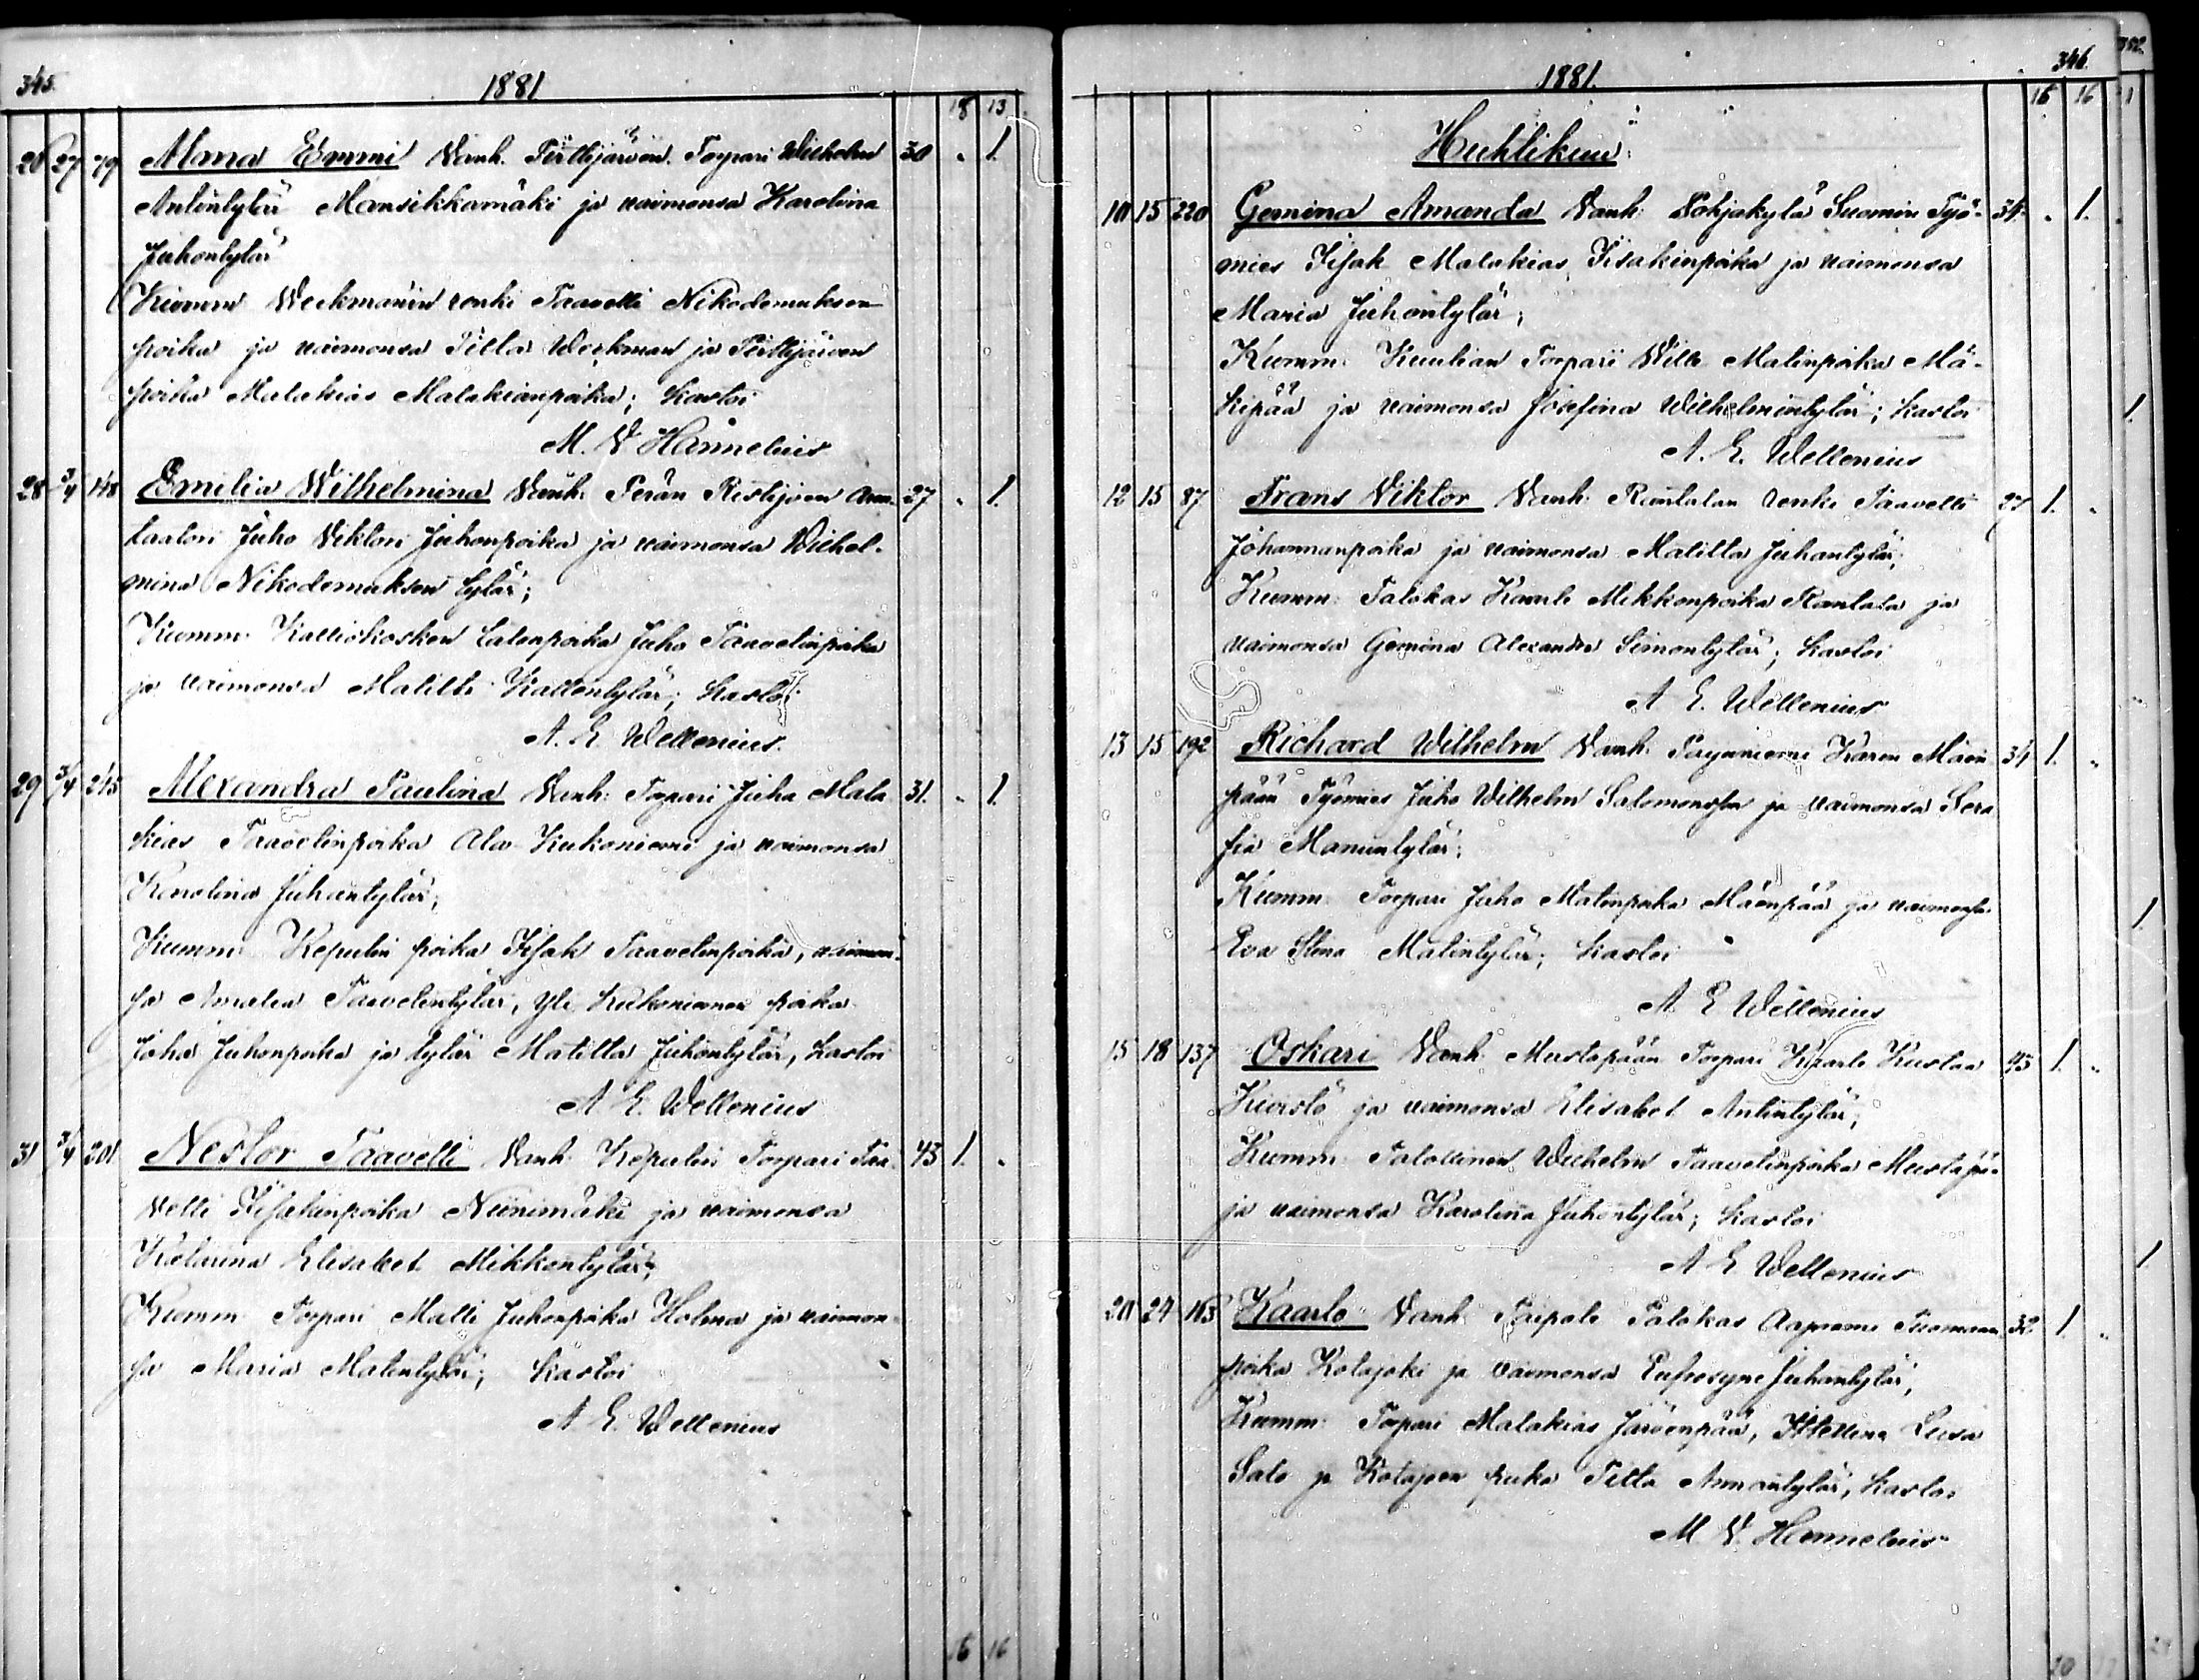 345.
1881
18 13
26 27 79 Alma Emmi Vanh. Perttijärven Torpari Wilhelm 30 „ 1.
Antintytär Mansikkamäki ja vaimonsa Karolina
Juhontytär
Kumm Werkmanin renki Taavetti Nikodemuksen
poika ja vaimonsa Tilta Werkman ja Perttijärven
poika Malakias Malakianpoika; kastoi
M. V. Hannelius
28 3/4 148 Emilia Wilhelmina Vanh. Perän Ristijoen
Juho Viktori Juhonpoika ja vaimonsa Wilhel- 27 „ 1.
mina Nikodemuksen tytär;
Kumm. Kalliokosken talonpoika Juho Taavetinpoika
ja vaimonsa Matilta Kallentytär; kastoi
A. E. Wellenius.
29 3/4 245 Alexandra Paulina Vanh: Torpari Juha Mala 31. „ 1.
kias Taavetinpoika Ala Kukoniemi ja vaimonsa
Karolina Juhantytär;
Kumm. Kepulin poika Iisak Taavetinpoika, vaimon-
sa Amalia Taavetintytär, Yli Kukoniemen poika
Joha Juhonpoika ja tytär Matilta Juhontytär, kastoi
A. E. Wellenius
31 3/4 201 Nestor Taavetti Vanh. Kepulin Torpari Taa- 43 1. „
vetti Iisakinpoika Niinimäki ja vaimonsa
Katarina Elisabet Mikkontytär;
Kumm. Torpari Matti Juhonpoika Holma ja vaimon-
sa Maria Matintytär; kastoi
A. E. Wellenius
16 16
346.
1881.
16 16
Huhtikuu:
10 15 220 Gemina Amanda Vanh: Pohjakylä Suomin Työ- 34. „ 1.
mies Iisak Malakias Iisakinpoika ja vaimonsa
Maria Juhontytär;
Kumm: Kuulian Torpari Wille Matinpoika Mä-
kipää ja vaimonsa Josefina Wilhelmintytär; kastoi
A. E. Wellenius
12 15 87 Frans Viktor Vanh: Rantalan renki Taavetti 27 1. „
Johannanpoika ja vaimonsa Matilta Juhantytär;
Kumm: Talokas Kaarlo Mikkonpoika Rantala ja
vaimonsa Gemina Alexandra Simontytär; kastoi
A. E. Wellenius
13 15 192 Richard Wilhelm Vanh. Karen Mäen- 34 1. „
pään Työmies Juho Wilhelm ja vaimonsa Sera
fia Manuntytär;
Kumm. Torpari Juho Matinpoika Mäenpää ja vaimonsa
Eva Stina Matintytär; kastoi
A. E. Wellenius
15 18 137 Oskari Vanh: Mustapään Torpari Kaarlo Kustaa 45 1. „
Kivistö ja vaimonsa Elisabet Antintytär;
Kumm. Talollinen Wilhelm Taavetinpoika Mustapää
ja vaimonsa Karolina Juhontytär; kastoi
A. E. Wellenius
20 24 163 Kaarlo Vanh: Taipale Talokas Aapraami Tuomaan 32. 1. „
poika Kotajoki ja vaimonsa Eufrosyne Juhantytär,
Kumm: Torpari Malakias Järvenpää, Itsellinen Liisa
Salo ja Kotajoen piika Tilta Annantytär, kastoi
M. V. Hannelius
352.